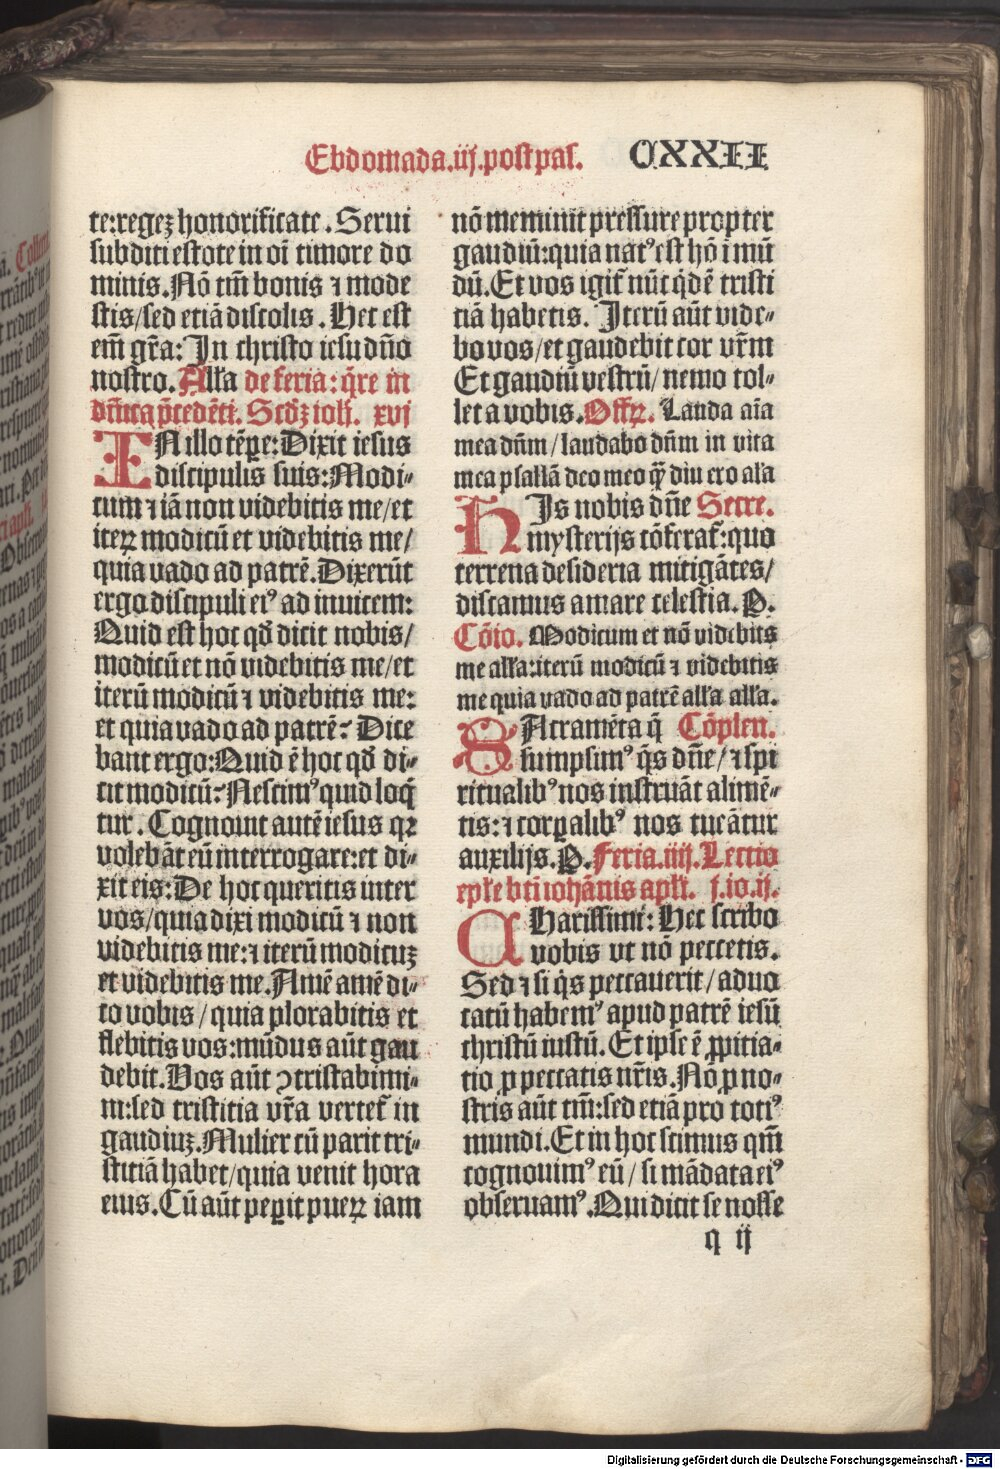 Ebdomada.iij.post pas. CXXII
te:regez honorificate. Serui
subditi estote in oī timore do
minis. Nō tm̄ bonis ⁊ mode
stis/sed etiā discolis. Hec est
em̄ gr̄a: In christo iesu dn̄o
nostro. Alła de feria: q̄re in
dn̄ica p̄cedēti. Scd̄z ioh. xvj
IN illo tēpe: Dixit iesus
discipulis suis: Modi⸗
cum ⁊ iā non videbitis me/et
iteꝝ modicū et videbitis me/
quia vado ad patrē. Dixerūt
ergo discipuli eiꝰ ad inuicem:
Quid est hoc qđ dicit nobis/
modicū et nō videbitis me/et
iterū modicū ⁊ videbitis me:
et quia vado ad patrē? Dice
bant ergo: Quid ē hoc qđ di⸗
cit modicū? Nescimꝰ quid loq̄
tur. Cognouit autē iesus qꝛ
volebāt eū interrogare: et di⸗
xit eis: De hoc queritis inter
vos/quia dixi modicū ⁊ non
videbitis me: ⁊ iterū modicuz
et videbitis me. Amē amē di⸗
co vobis/quia plorabitis et
flebitis vos: mūdus aūt gau
debit. Vos aūt ↄtristabimi⸗
ni: sed tristitia vr̄a vertet᷑ in
gaudiuz. Mulier cū parit tri⸗
stitiā habet/quia venit hora
eius. Cū aūt peꝑit pueꝝ iam
nō meminit pressure propter
gaudiū: quia natꝰ est hō ī mū
dū. Et vos igit᷑ nūc qͥdē tristi
tiā habetis. Iterū aūt vide⸗
bo vos/et gaudebit cor vr̄m
Et gaudiū vestrū/nemo tol⸗
let a vobis. Offꝝ. Lauda aīa
mea dn̄m/laudabo dn̄m in vita
mea psallā deo meo qͣ̄diu ero ała
HIs nobis dn̄e Secre.
mysterijs cōferat᷑: quo
terrena desideria mitigātes/
discamus amare celestia. P.
Cōio. Modicum et nō videbits
me ałła: iterū modicū ⁊ videbitis
me quia vado ad patrē ałła ałła.
SAcramēta q̄ Cōplen.
sumpsimꝰ qͣs dn̄e/⁊ spi
ritualibꝰ nos instruāt alimē⸗
tis: ⁊ corꝑalibꝰ nos tueātur
auxilijs. P. Feria.iiij. Lectio
epłe bt̄i iohānis apłi. j.io.ij.
CHarissimi: Hec scribo
vobis vt nō peccetis.
Sed ⁊ si qͥs peccauerit/aduo
catū habemꝰ apud patrē iesū
christū iustū. Et ipse ē ꝓpitia⸗
tio ꝓ peccatis nr̄is. Nō ꝓ no⸗
stris aūt tm̄: sed etiā pro totiꝰ
mundi. Et in hoc scimus qm̄
cognouimꝰ eū/si mādata eiꝰ
obseruamꝰ. Qui dicit se nosse
q ij
Digitalisierung gefördert durch die Deutsche Forschungsgemeinschaft - DFG